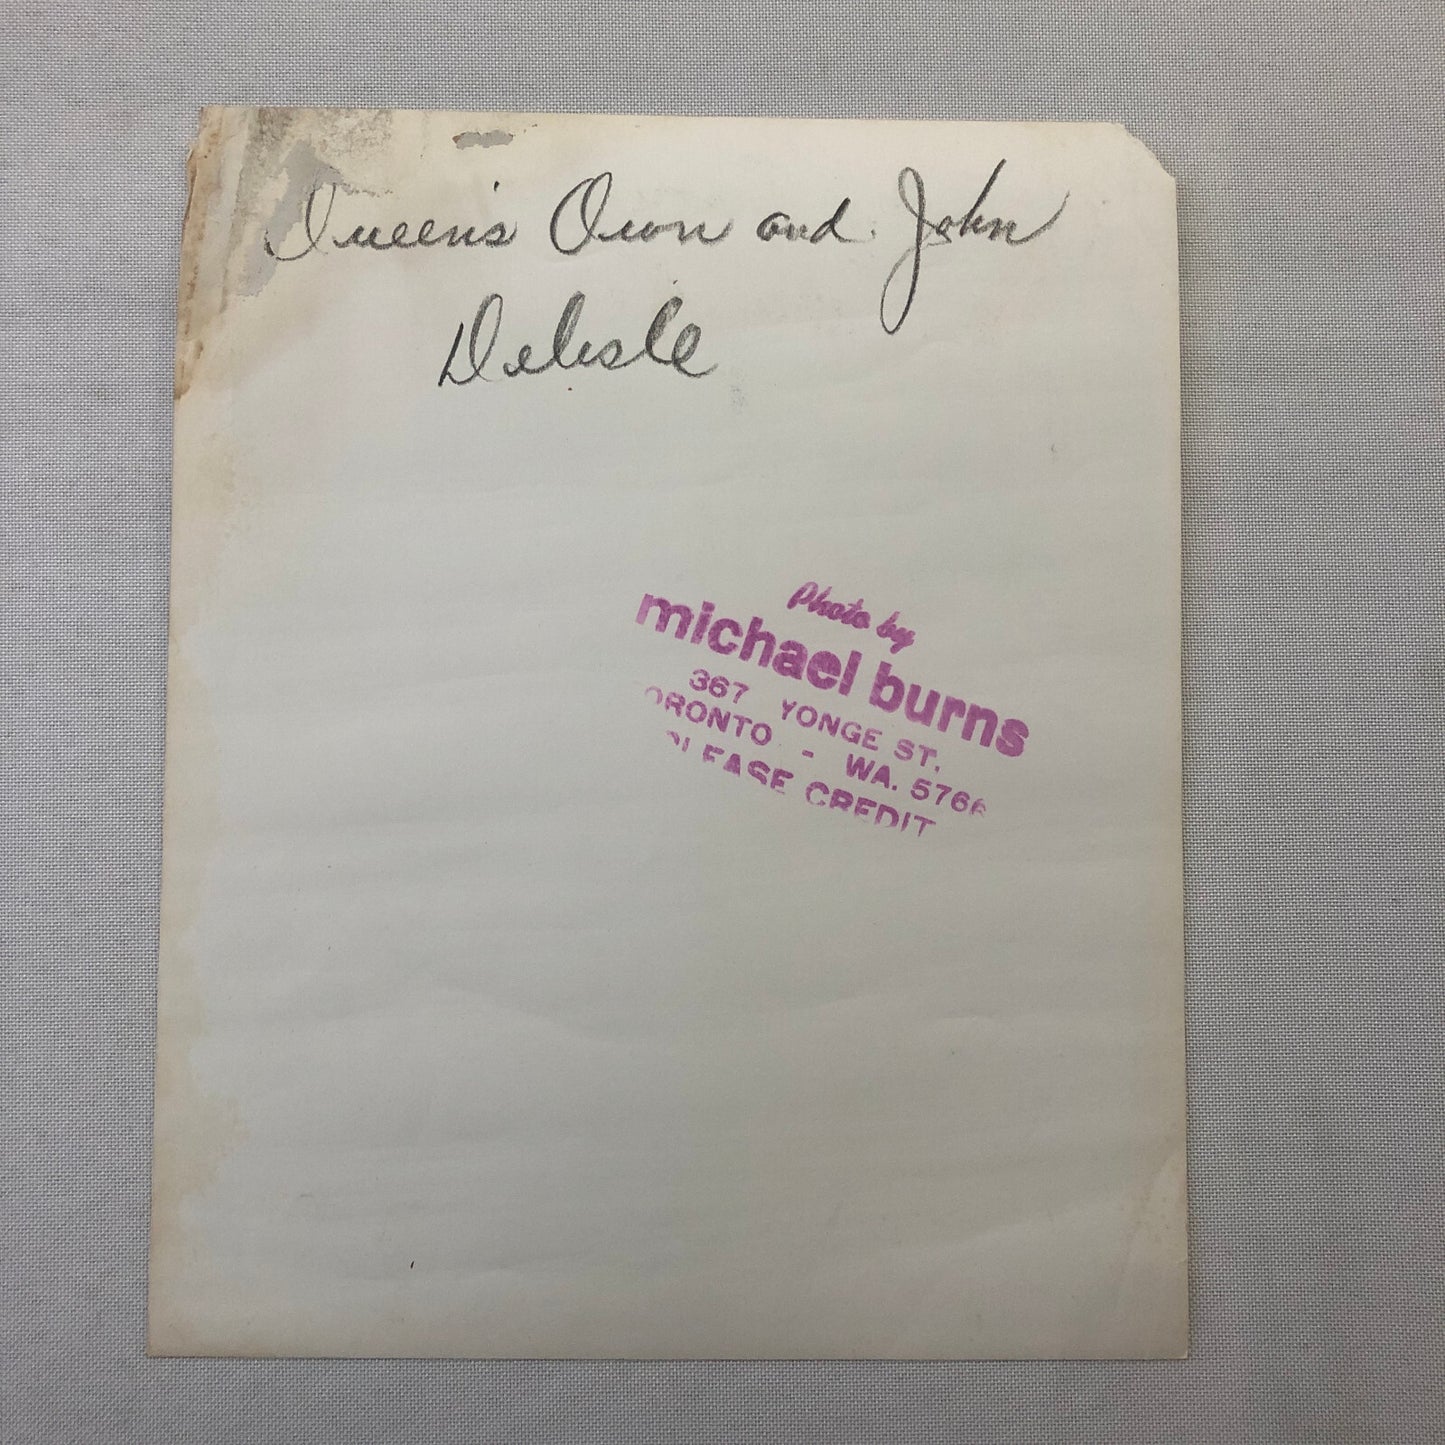 Queen's Own and John
Delisle
Photo by
michael burns
367 YONGE ST.
TORONTO - WA. 5766
PLEASE CREDIT